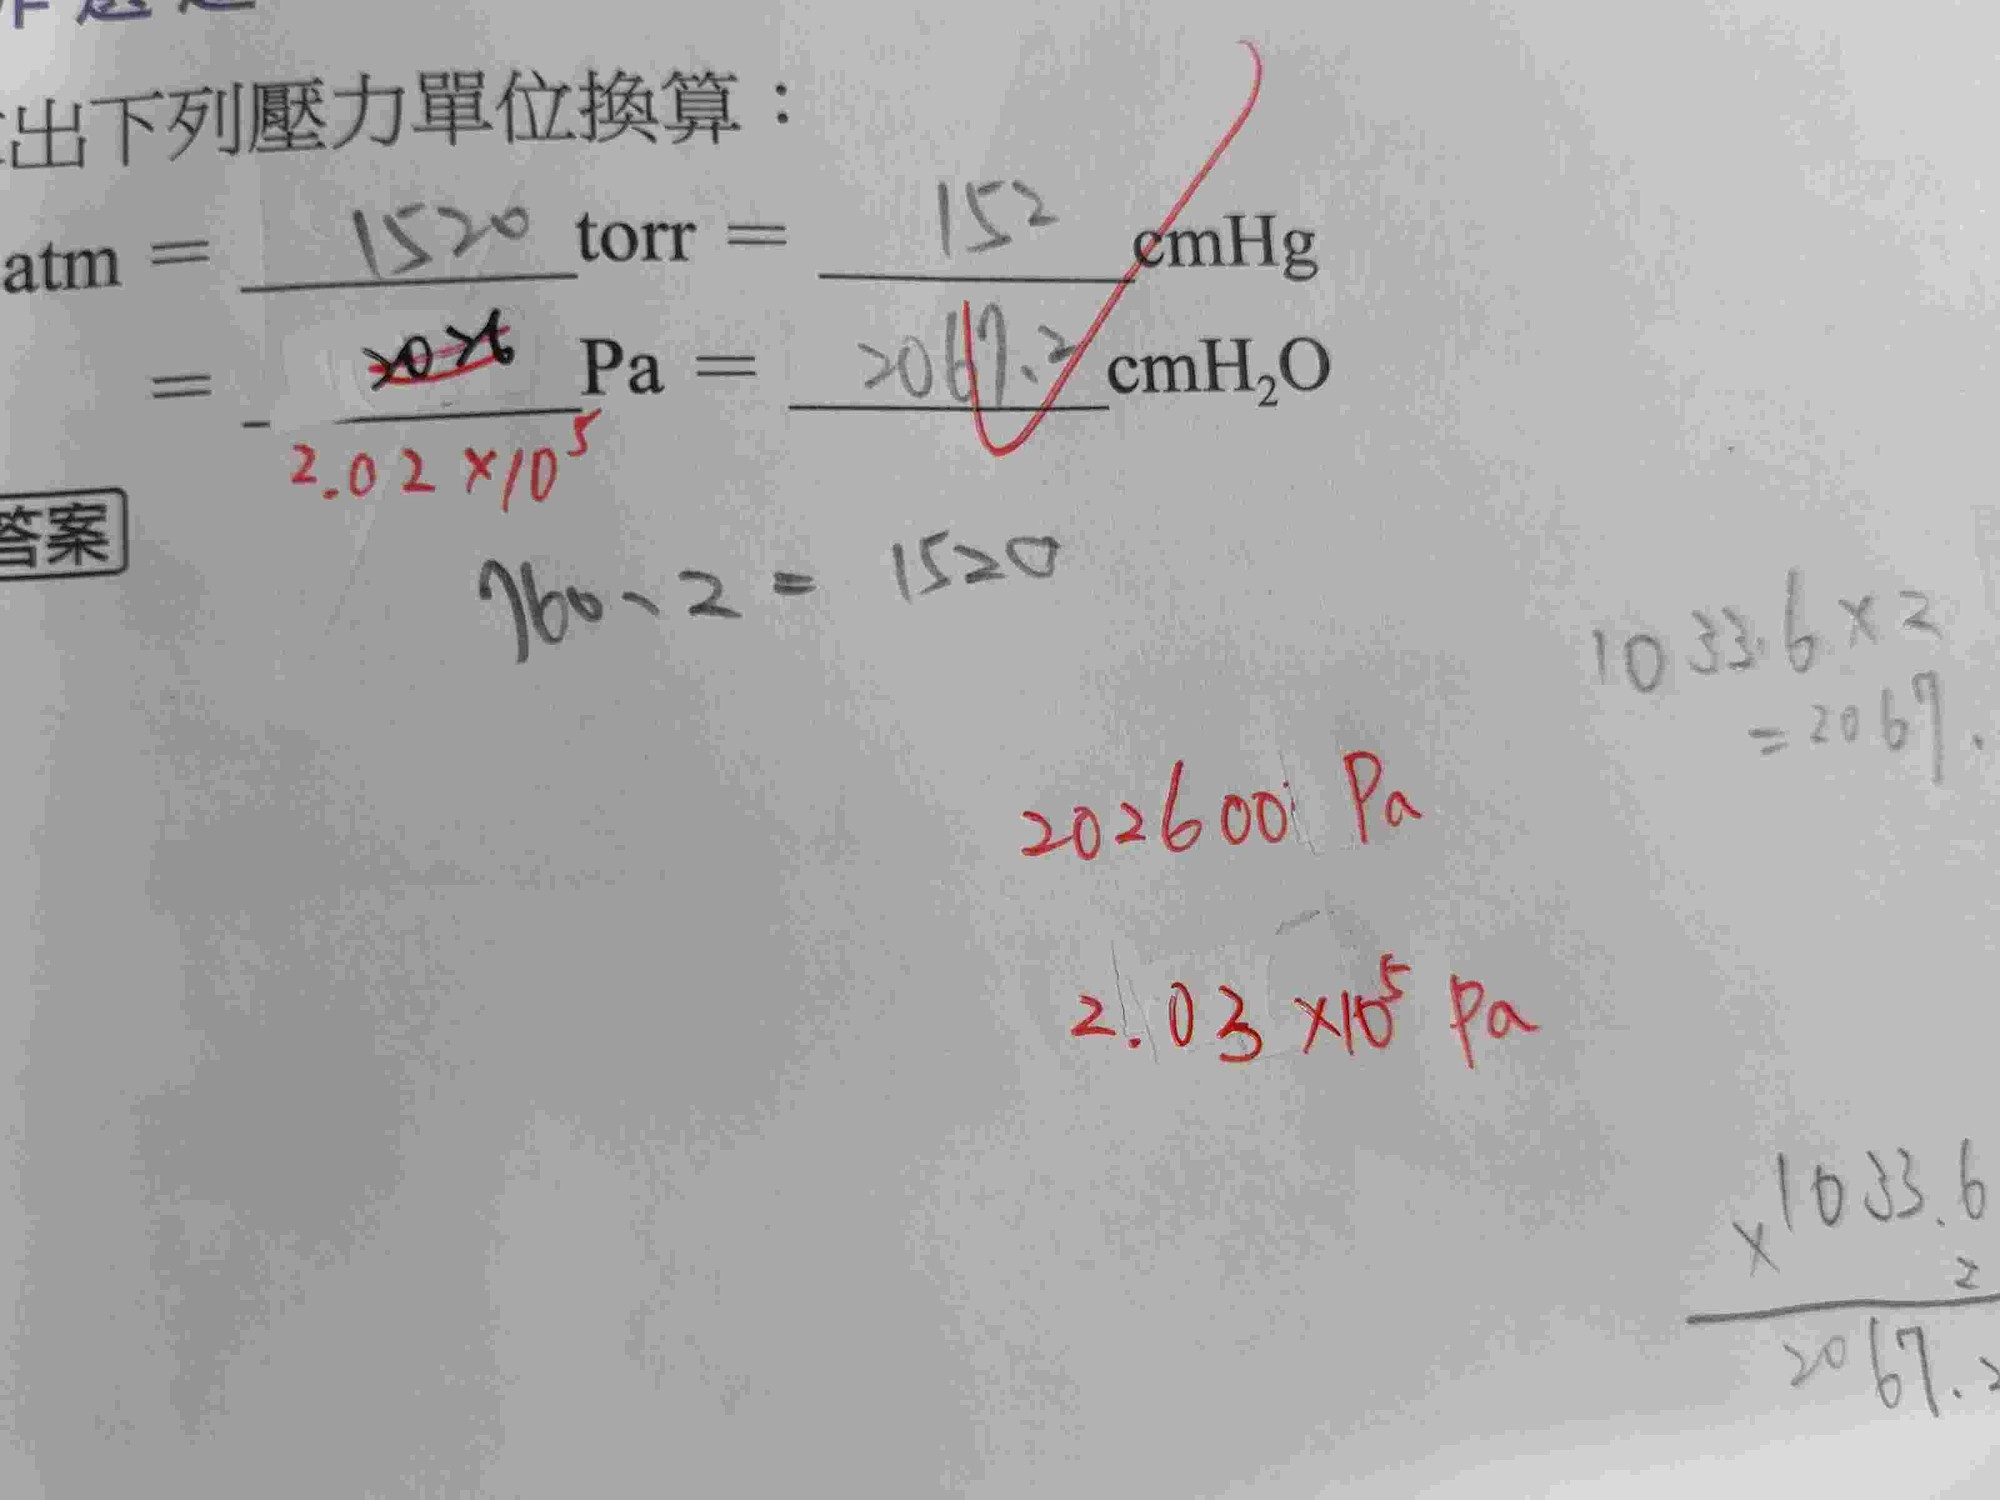 出下列壓力單位換算：
atm = 1520 torr = 152 cmHg
= 2026 Pa = 2067.2 cmH₂O
2.02 ×10⁵
答案
760、2 = 1520
1033.6 × 2
= 2067.
202600 Pa
2.03 ×10⁵ Pa
1033.6
× 2
2067.2